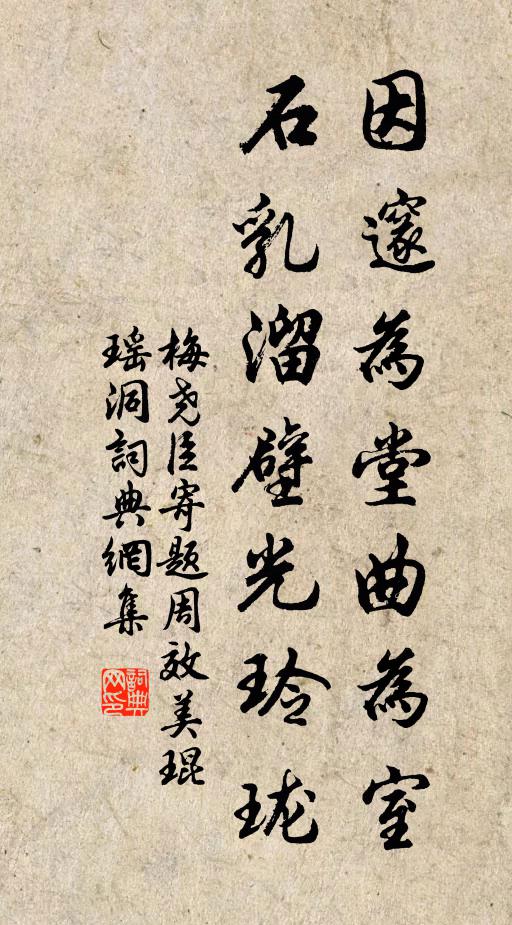 因邃為堂曲為室
石乳溜壁光玲珑
梅尧臣寄题周效美琨
瑶洞詞典網集
詞典网印